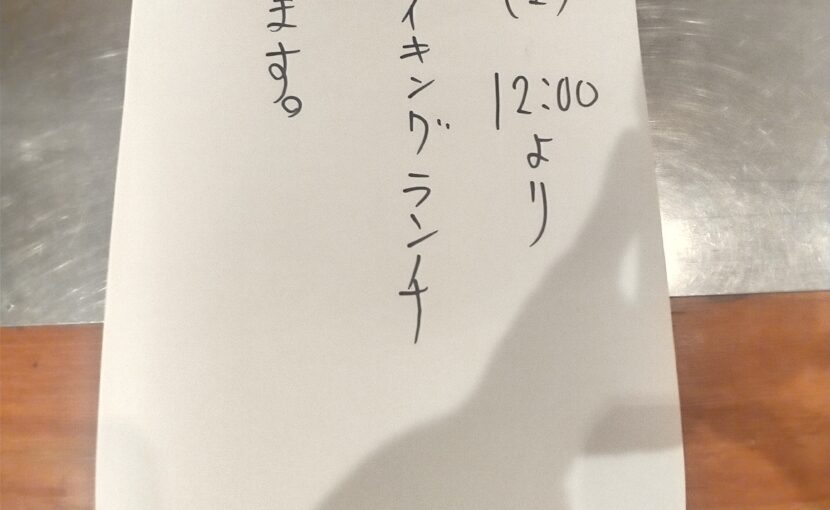 12:00より
イキングランチ
ます。